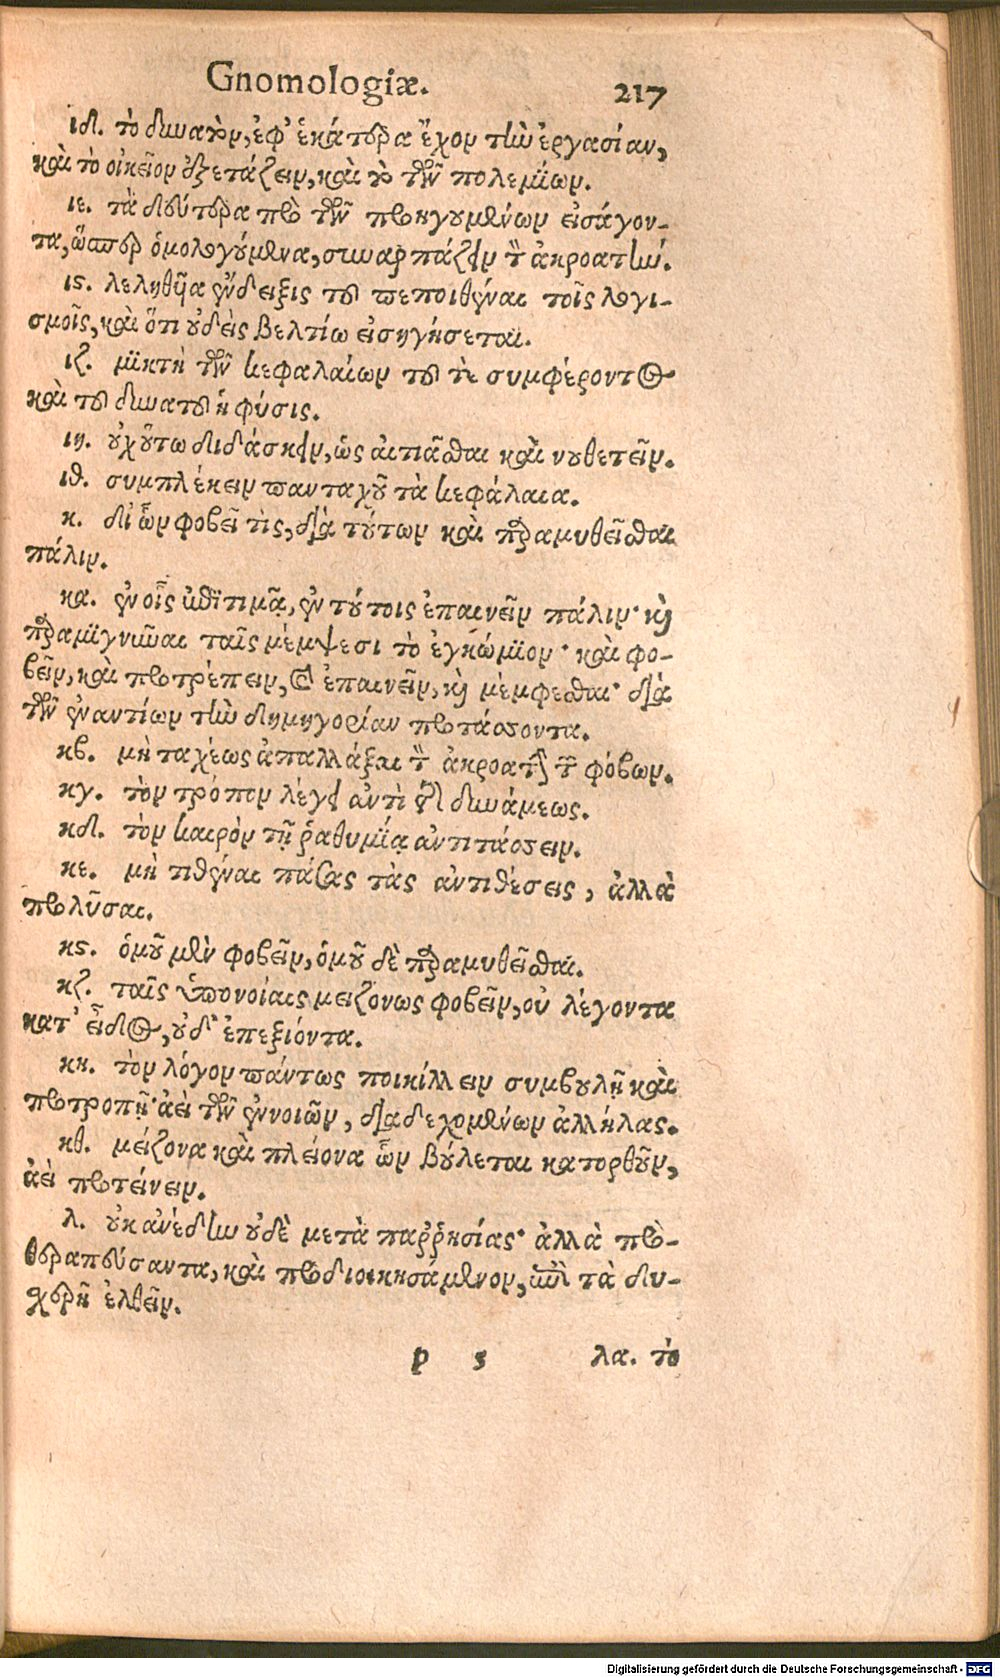 Gnomologiæ. 217
ιδ. τὸ δυνατὸν, ἐφ' ἑκάτερα ἔχον τὴν ἐργασίαν,
καὶ τὸ οἰκεῖον ἐξετάζειν, καὶ τὸ τῶν πολεμίων.
ιε. τὰ δεύτερα πρὸ τῶν προηγουμένων εἰσάγον-
τα, ὥσπερ ὁμολογούμενα, συναρπάζειν τὸν ἀκροατήν.
ις. λεληθυῖα ἔνδειξις τοῦ πεποιθέναι τοῖς λογι-
σμοῖς, καὶ ὅτι οὐδεὶς βελτίω εἰσηγήσεται.
ιζ. μικτὴ τῶν κεφαλαίων τοῦ τε συμφέροντος
καὶ τοῦ δυνατοῦ ἡ φύσις.
ιη. οὐχ οὕτω διδάσκειν, ὡς αἰτιᾶσθαι καὶ νουθετεῖν.
ιθ. συμπλέκειν πανταχοῦ τὰ κεφάλαια.
κ. δι' ὧν φοβεῖ τὶς, διὰ τούτων καὶ παραμυθεῖσθαι
πάλιν.
κα. ἐν οἷς ἐπιτιμᾷ, ἐν τούτοις ἐπαινεῖν πάλιν· καὶ
παραμιγνῦναι ταῖς μέμψεσι τὸ ἐγκώμιον· καὶ φο-
βεῖν, καὶ προτρέπειν, καὶ ἐπαινεῖν, καὶ μέμφεσθαι· διὰ
τῶν ἐναντίων τὴν δημηγορίαν προτάσσοντα.
κβ. μὴ ταχέως ἀπαλλάξαι τὸν ἀκροατὴν τῶν φόβων.
κγ. τὸν τρόπον λέγει ἀντὶ τῆς δυνάμεως.
κδ. τὸν καιρὸν τῇ ῥαθυμίᾳ ἀντιτάσσειν.
κε. μὴ τιθέναι πάσας τὰς ἀντιθέσεις, ἀλλὰ
προλῦσαι.
κς. ὁμοῦ μὲν φοβεῖν, ὁμοῦ δὲ παραμυθεῖσθαι.
κζ. ταῖς ὑπονοίαις μειζόνως φοβεῖν, οὐ λέγοντα
κατ' εἶδος, οὐδ' ἐπεξιόντα.
κη. τὸν λόγον πάντως ποικίλλειν συμβουλῇ καὶ
προτροπῇ· ἀεὶ τῶν ἐννοιῶν, διαδεχομένων ἀλλήλας.
κθ. μείζονα καὶ πλείονα ὧν βούλεται κατορθοῦν,
ἀεὶ προτείνειν.
λ. οὐκ ἀνέδην οὐδὲ μετὰ παῤῥησίας· ἀλλὰ προ-
θεραπεύσαντα, καὶ προδιοικησάμενον, ἐπὶ τὰ δυ-
χερῆ ἐλθεῖν.
p 5 λα. τὸ
Digitalisierung gefördert durch die Deutsche Forschungsgemeinschaft - DFG